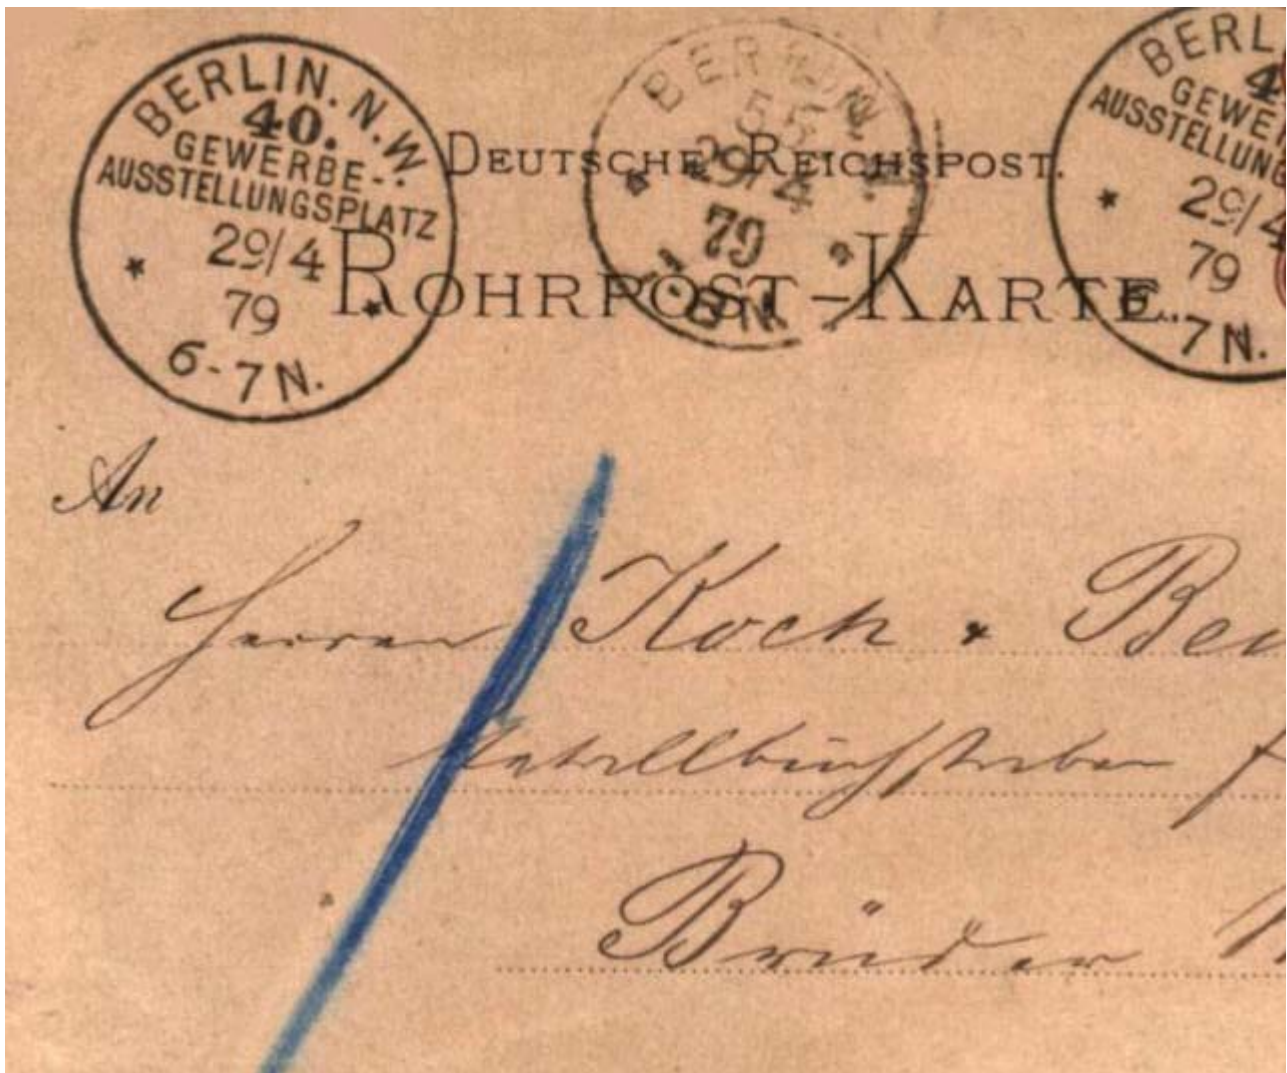 BERLIN. N.W.
40.
GEWERBE-
AUSSTELLUNGSPLATZ
29/4
79
6-7N.
BERLIN
55
29/4
79
-8N.
BERL
4
GEWE
AUSSTELLUNG
29/4
79
7N.
DEUTSCHE REICHSPOST.
ROHRPOST-KARTE.
An
Herren Koch &
Metallbuchstaben f
Brüder